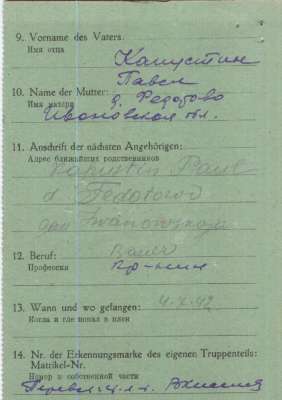 9. Vorname des Vaters.
Имя отца
Капустин
Павел
10. Name der Mutter:
Имя матери
д. Федотово
Ивановская обл.
11. Anschrift der nächsten Angehörigen:
Адрес ближайших родственников
Kapustin Paul
d. Fedotowo
Iwanowskaja
12. Beruf:
Bauer
Профессия
кр-нин
13. Wann und wo gefangen:
Когда и где попал в плен
14. Nr. der Erkennungsmarke des eigenen Truppenteils:
Matrikel-Nr.
Номер в собственной части